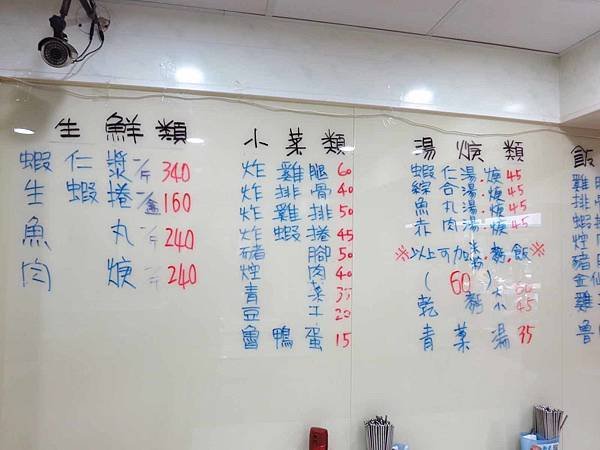 生鮮類
蝦仁漿一斤340
生蝦捲一盒160
魚丸一斤240
肉焿一斤240
小菜類
炸雞腿60
炸排骨40
炸雞排50
炸蝦捲45
豬腳50
煙肉40
青菜35
豆干20
魯鴨蛋15
湯焿類
蝦仁湯.焿45
綜合湯.焿45
魚丸湯.焿45
赤肉湯.焿45
※以上可加 麵.飯※
(60)
乾麵大60
小45
青菜湯35
飯
雞
排
蝦
煙
豬
雞
魯